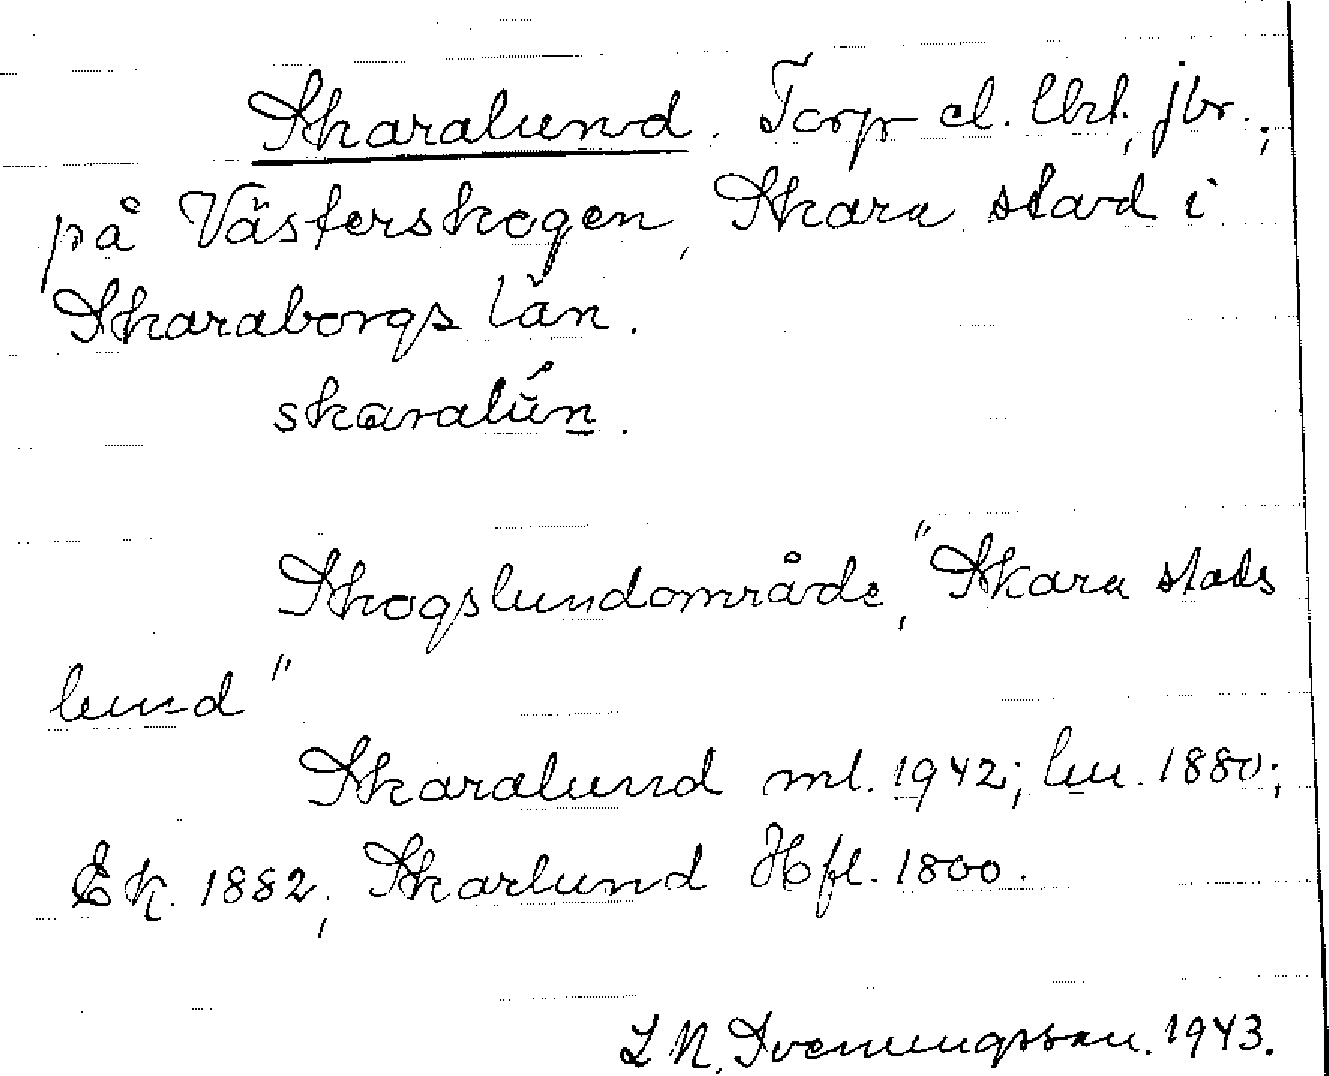 Skaralund. Torp el. lht, jbr.,
på Västerskogen, Skara stad i
Skaraborgs län.
skaralún.
Skogslundområde, "Skara stads
lund"
Skaralund ml. 1942; lu. 1880;
Ek. 1882, Skarlund Hfl. 1800.
L N. Svenungsson. 1943.